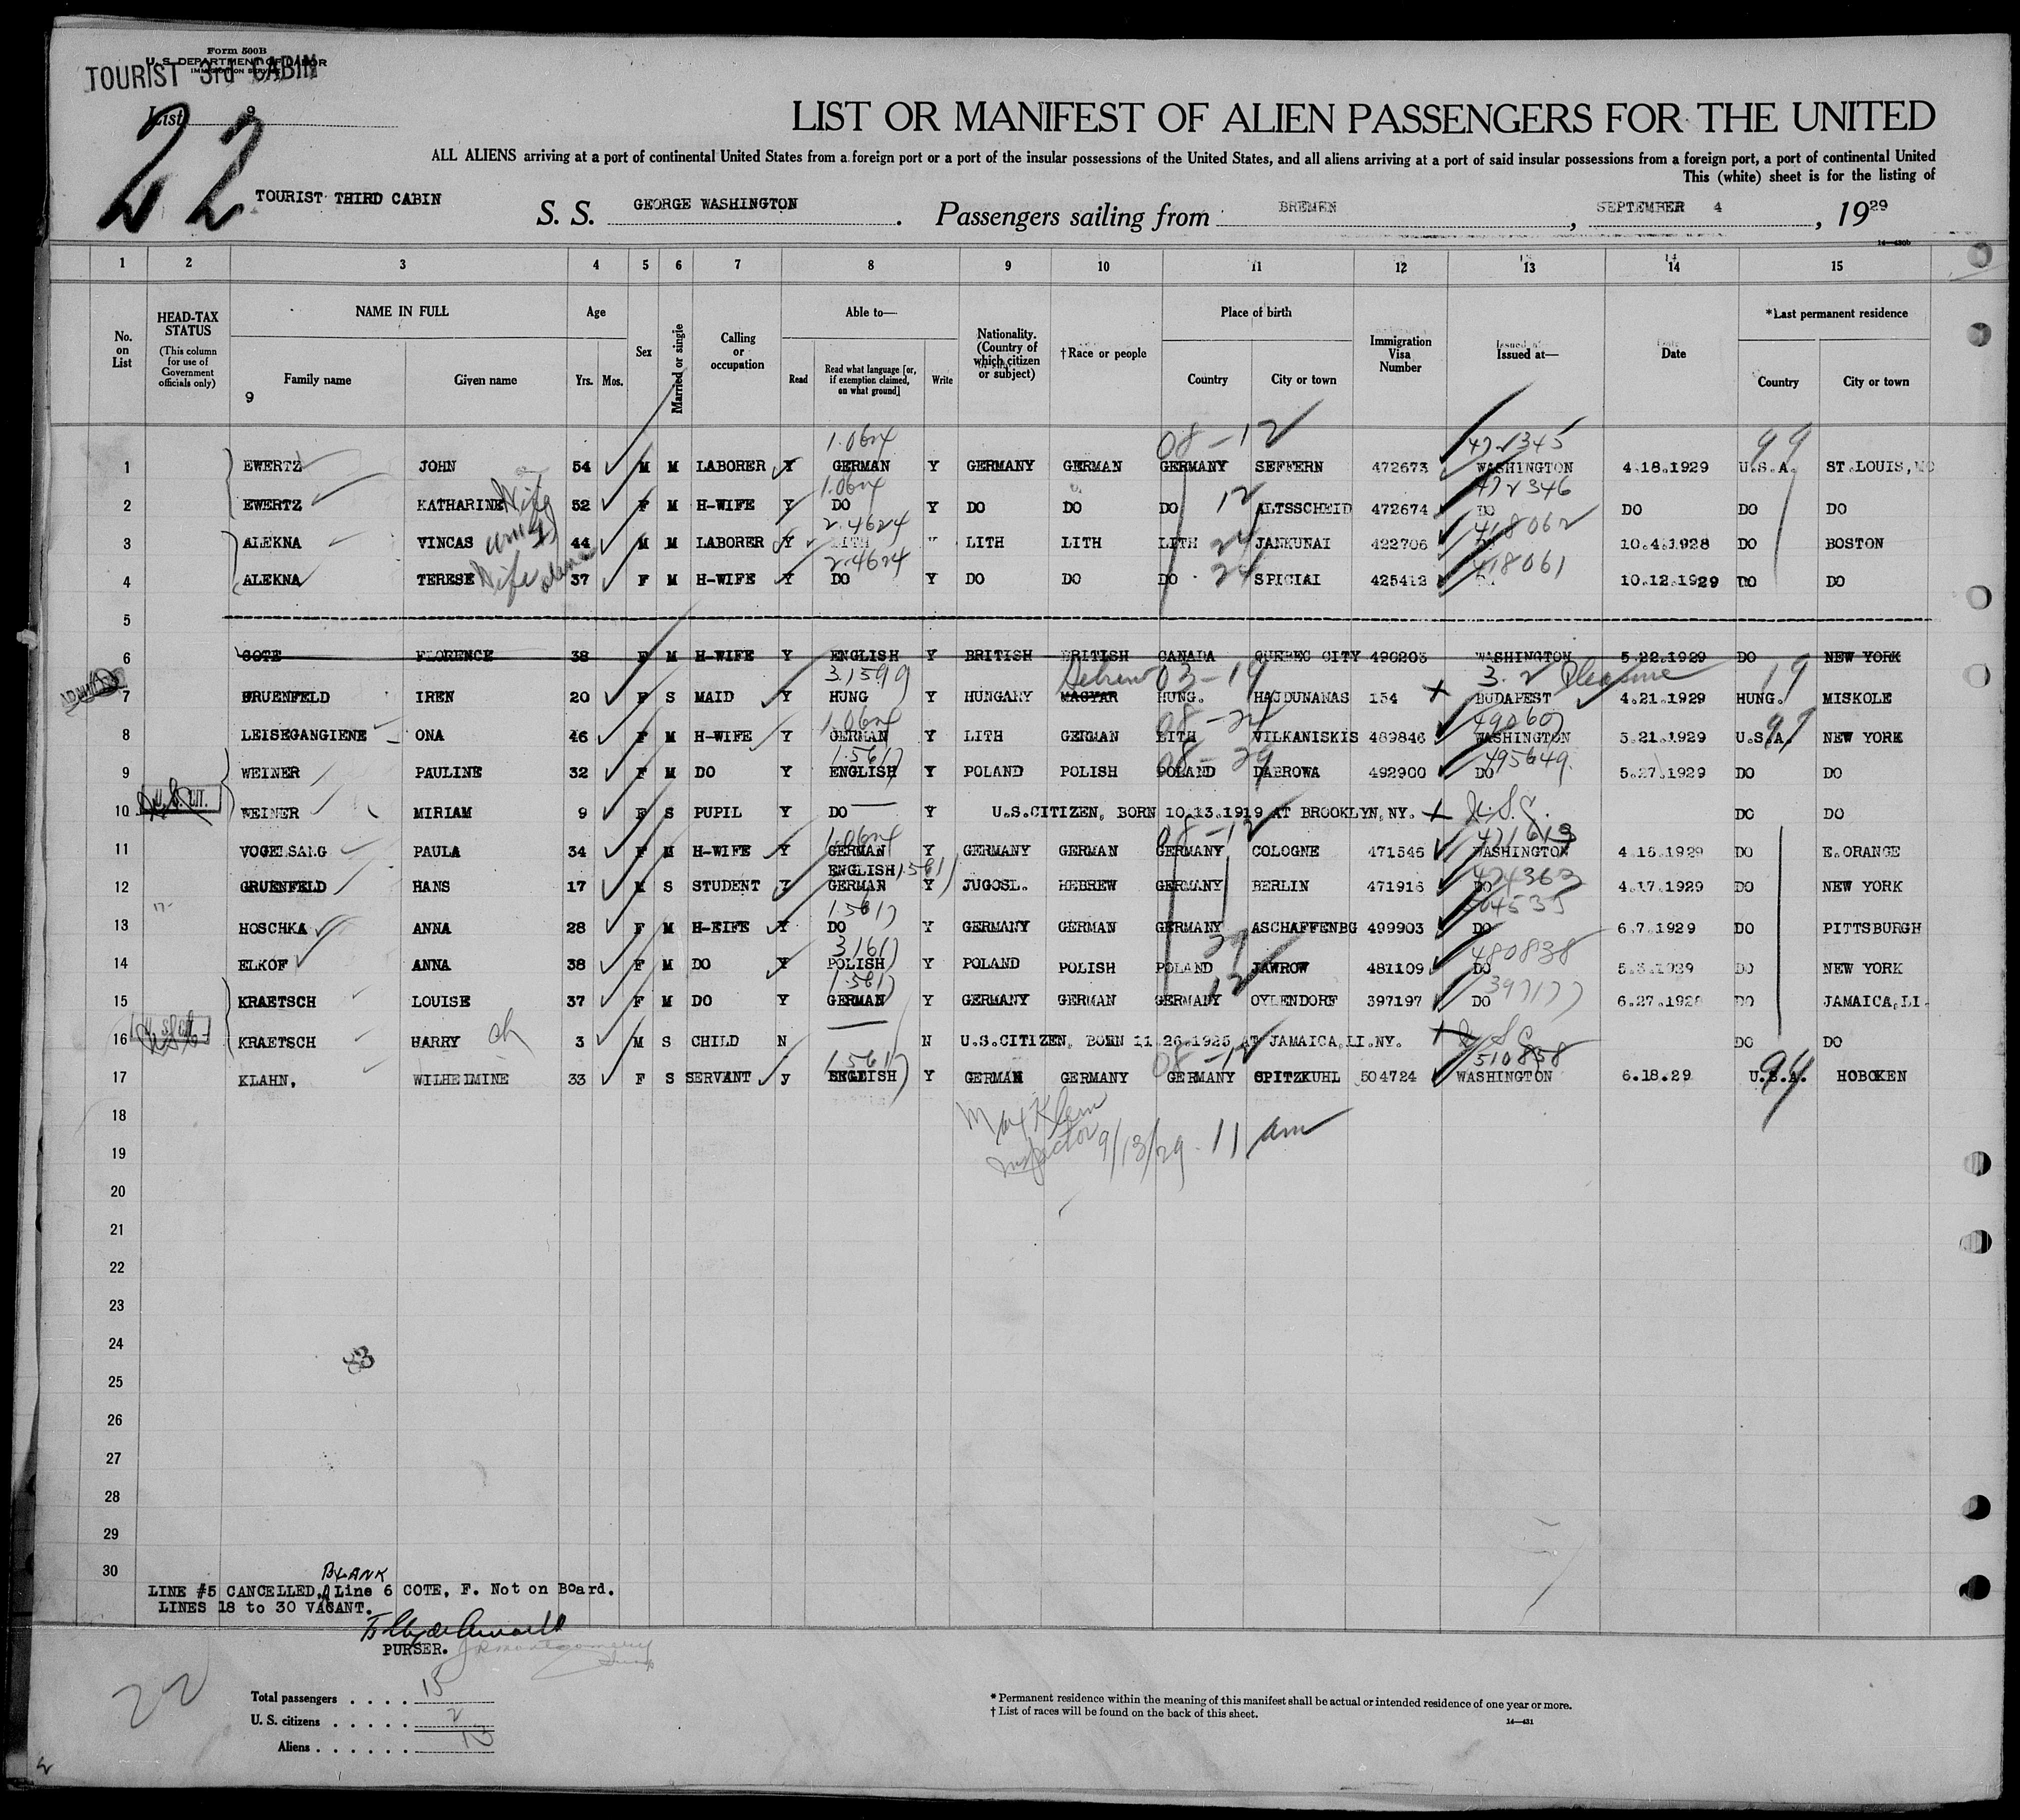 Form 500B
U. S. DEPARTMENT OF LABOR
IMMIGRATION SERVICE
TOURIST 3rd CABIN
List 9
22
LIST OR MANIFEST OF ALIEN PASSENGERS FOR THE UNITED
ALL ALIENS arriving at a port of continental United States from a foreign port or a port of the insular possessions of the United States, and all aliens arriving at a port of said insular possessions from a foreign port, a port of continental United
This (white) sheet is for the listing of
TOURIST THIRD CABIN
S. S. GEORGE WASHINGTON. Passengers sailing from BREMEN, SEPTEMBER 4, 1929
14-430b
1 2 3 4 5 6 7 8 9 10 11 12 13 14 15
No. on List
HEAD-TAX STATUS (This column for use of Government officials only)
NAME IN FULL
9 Family name Given name
Age
Yrs. Mos.
Sex
Married or single
Calling or occupation
Able to—
Read Read what language [or, if exemption claimed, on what ground] Write
Nationality. (Country of which citizen or subject)
†Race or people
Place of birth
Country City or town
Immigration Visa Number
Issued at—
Date
*Last permanent residence
Country City or town
1.0624 08-12 472345 99
1 EWERTZ JOHN 54 M M LABORER Y GERMAN Y GERMANY GERMAN GERMANY SEFFERN 472673 WASHINGTON 4.18.1929 U.S.A. ST.LOUIS,MO
Wife 1.0624 12 472346
2 EWERTZ KATHARINE 52 F M H-WIFE Y DO Y DO DO DO ALTSSCHEID 472674 DO DO DO DO
2.4624 24 418062
3 ALEKNA VINCAS 44 M M LABORER Y LITH Y LITH LITH LITH JANKUNAI 422706 DO 10.4.1928 DO BOSTON
Wife 2.4624 24 418061
4 ALEKNA TERESE 37 F M H-WIFE Y DO Y DO DO DO SPICIAI 425412 DO 10.12.1929 DO DO
5
6 COTE FLORENCE 38 F M H-WIFE Y ENGLISH Y BRITISH BRITISH CANADA QUEBEC CITY 490203 WASHINGTON 5.22.1929 DO NEW YORK
3.1599 Hebrew 03-19 3.2 Pleasure 19
7 GRUENFELD IREN 20 F S MAID Y HUNG Y HUNGARY MAGYAR HUNG. HAJDUNANAS 154 BUDAPEST 4.21.1929 HUNG. MISKOLE
1.0624 08-24 99
8 LEISEGANGIENE ONA 46 F M H-WIFE Y GERMAN Y LITH GERMAN LITH VILKANISKIS 489846 WASHINGTON 5.21.1929 U.S.A. NEW YORK
1.561 08-29 495649
9 WEINER PAULINE 32 F M DO Y ENGLISH Y POLAND POLISH POLAND DABROWA 492900 DO 5.27.1929 DO DO
U. S. CIT.
10 WEINER MIRIAM 9 F S PUPIL Y DO Y U.S.CITIZEN, BORN 10.13.1919 AT BROOKLYN,NY. U.S.C. DO DO
1.0624 08-12 471613
11 VOGELSANG PAULA 34 F M H-WIFE Y GERMAN Y GERMANY GERMAN GERMANY COLOGNE 471546 WASHINGTON 4.16.1929 DO E.ORANGE
ENGLISH 1.561 474363
12 GRUENFELD HANS 17 M S STUDENT Y GERMAN Y JUGOSL. HEBREW GERMANY BERLIN 471916 DO 4.17.1929 DO NEW YORK
1.561 504535
13 HOSCHKA ANNA 28 F M H-EIFE Y DO Y GERMANY GERMAN GERMANY ASCHAFFENBG 499903 DO 6.7.1929 DO PITTSBURGH
3.161 29 480838
14 ELKOF ANNA 38 F M DO Y POLISH Y POLAND POLISH POLAND JAWROW 481109 DO 5.3.1929 DO NEW YORK
1.561 12 397177
15 KRAETSCH LOUISE 37 F M DO Y GERMAN Y GERMANY GERMAN GERMANY OYLENDORF 397197 DO 6.27.1928 DO JAMAICA,LI.
U. S. CIT.
16 KRAETSCH HARRY ch 3 M S CHILD N N U.S.CITIZEN, BORN 11.26.1925 AT JAMAICA,LI.NY. U.S.C. DO DO
1.561 08-12 510858 99
17 KLAHN, WILHELMINE 33 F S SERVANT y ENGLISH Y GERMAN GERMANY GERMANY SPITZKUHL 504724 WASHINGTON 6.18.29 U.S.A. HOBOKEN
18 Max Klein
19 Inspector 9/13/29. 11 am
20
21
22
23
24
25
26
27
28
29
30
BLANK
LINE #5 CANCELLED, Line 6 COTE, F. Not on Board.
LINES 18 to 30 VACANT.
PURSER.
22
Total passengers . . . . 15
U. S. citizens . . . . . 2
Aliens . . . . . . 13
* Permanent residence within the meaning of this manifest shall be actual or intended residence of one year or more.
† List of races will be found on the back of this sheet.
14-431